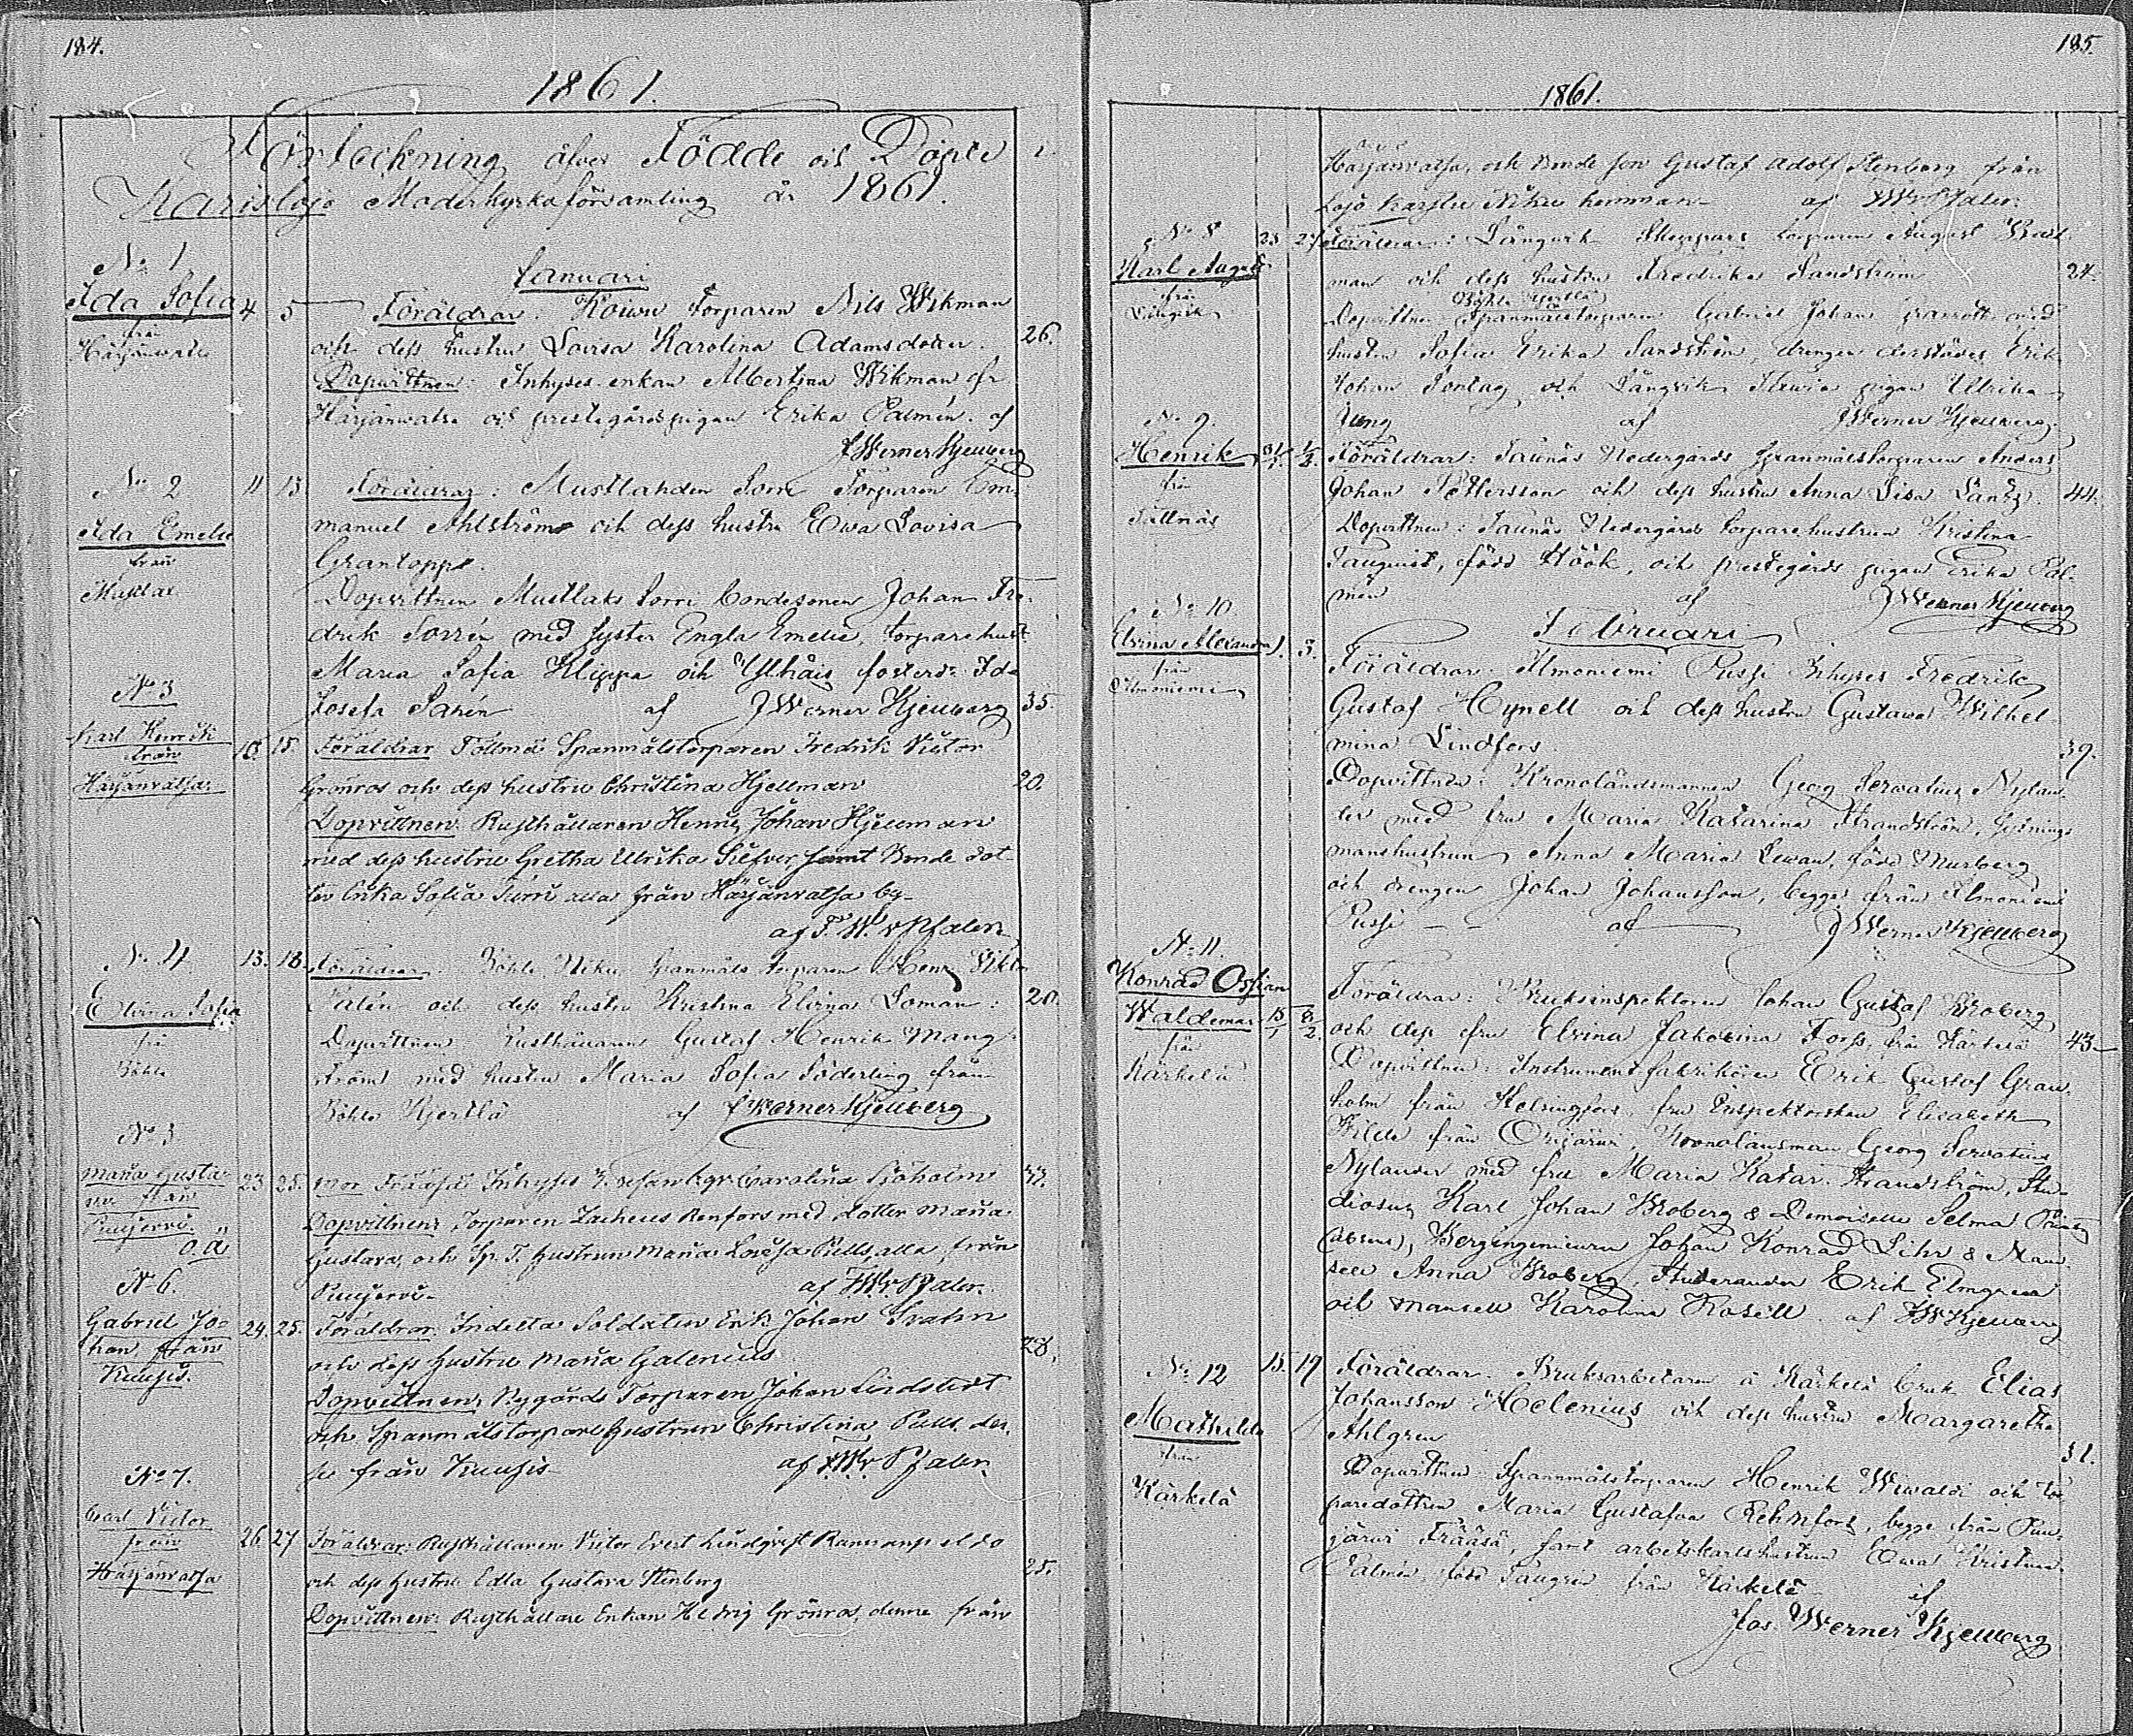 184.
1861.
Förteckning öfver Födde och Döpte i
Karislojo Moderkyrkoförsamling år 1861.
Januari
No 1
Ida Sofia 4 5
från
Härjänvatsa
Föräldrar: Torparen Nils Wikman
och dess hustru Lovisa Karolina Adamsdotter. 26.
Dopvittnen: Inhyses enkan Albertina Wikman fr
Härjänvatsa och prestegårdspigan Erika Palmén. af
J Werner Kjellberg
No 2 11 13
Ida Emelie
från
Mustlax
Föräldrar: Mustlahden Sorri Torparen Em-
manuel Ahlström och dess hustru Ewa Lovisa
Grantopp.
Dopvittnen Mustlaks Sorri bondesonen Johan Fre-
drik Sorrén med syster Engla Emelie, torparehust
Maria Sofia Klippa och fosterd: Ida
Josefa af J Werner Kjellberg 35.
No 3
Karl Henrik
från 10. 15.
Härjänvatsa.
Föräldrar Spanmålstorparen Fredrik Victor
Grönros och dess hustru Christina Hjellman 20.
Dopvittnen: Rusthållaren Henric Johan Hjellman
med dess hustru Gretha Ulrika samt Bonde dot-
ter Erika Sofia alla från Härjänvatsa by-
af F. W. v Pfaler
No 4. 13. 18.
Elvina Sofia
från
Böhle
Föräldrar Böhle Niku Spanmåls torparen Henr. Vikt.
och dess hustru Kristina Elvina Loman: 20.
Dopvittnen: Rusthållaren Gustaf Henrik Mang-
ström med hustru Maria Sofia Söderling från
Böhle Kjertlä af J Werner Kjellberg
No 5.
Maria Gusta-
va från 23. 25.
Puujervi.
o.ä
Mor Inhyses Carolina Sjöholm
Dopvittnen: Torparen Zacheus Renfors med dotter Maria
Gustava, och Sp. T. hustrun Maria Lovisa alla från
Puujervi- af F.W.v Pfaler.
No 6.
Gabriel Jo-
han, från 24. 25.
Kuusis.
Föräldrar: Indelta Soldaten Erik Johan
och dess hustru Maria Galenius 28.
Dopvittnen: Nygårds Torparen Johan Lindstedt
och Spanmålstorpare hustrun Christina
från Kuusis- af F.W.v Pfaler.
No 7.
Carl Victor
från 26. 27.
Härjänvatsa
Föräldrar: Rusthållaren Victor Evert Lindqvist
och dess hustru Edla Gustava Stenberg 25.
Dopvittnen: Rusthållare Enkan Hedvig Grönros, denne från
185.
1861.
Härjänvatsa, och bonde son Gustaf Adolf Stenberg från
Lojo Niku hemman- af F.W.v Pfaler.
No 8 23 27
Karl August
från
Långvik
Föräldrar: Långvik torparen August
man och dess hustru Fredrika Sandström 24.
Böhle Kjertlä
Dopvittnen Spanmålstorparen Gabriel Johan med
hustru Sofia Erika Sandström, drängen derstädes Erik
Johan Sontag och Långvik pigan Ulrika
Ljung af J Werner Kjellberg.
No 9.
Henrik 31/1. 1/2.
från
Tallnäs
Föräldrar: Tallnäs Nedergårds Spanmålstorparen Anders
Johan Pettersson och dess hustru Anna Lisa 44.
Dopvittnen: Tallnäs Nedergårds torpare hustrun Kristina
född Höök, och prestegårds pigan Erika Pal-
mén af J Werner Kjellberg
Februari
No 10
Elvina Alexandra 1. 3.
från
Ilmoniemi
Föräldrar Ilmoniemi Inhyses Fredrik
Gustaf Hynell och dess hustru Gustava Wilhel-
mina Lindfors. 39.
Dopvittnen: Kronoländsmannen Georg Servatius Nylan-
der med fru Maria Katarina Strandström,
manshustrun Anna Maria född Murberg
och drengen Johan Johansson, begge från Ilmoniemi
af J Werner Kjellberg
No 11.
Konrad Ossian
Waldemar 15/1 8/2.
från
Kärkelä
Föräldrar: Bruksinspektoren Johan Gustaf Broberg
och dess fru Elvina Jakobina Forss, från Kärkelä 43.
Dopvittnen: Instrumentfabrikören Erik Gustaf Gran-
holm från Helsingfors, fru Inspektorskan Elisabeth
Wilde från Orijärvi, Kronolänsman Georg Servatius
Nylander med fru Maria Katar. Strandström, Stu-
diosus Karl Johan Broberg & Demoiselle Selma
(absens), Bergingenieuren Johan Konrad Lihr & Mam-
sell Anna Broberg, Studeranden Erik Elmgren
och Mamsell Karolina Rosell. af J W Kjellberg
No 12 15. 17
Mathilda
från
Kärkelä
Föräldrar. Bruksarbetaren å Kärkelä bruk Elias
Johansson Helenius och dess hustru Margaretha
Ahlgren 31.
Dopvittnen. Spannmålstorparen Henrik Wiwaldi och tor-
paredottren Maria Gustafva Rehnfors, begge från Puu-
järwi samt arbetskarls hustrun Ewa Kristina
Palmén, född från Kärkelä
af
Jos. Werner Kjellberg